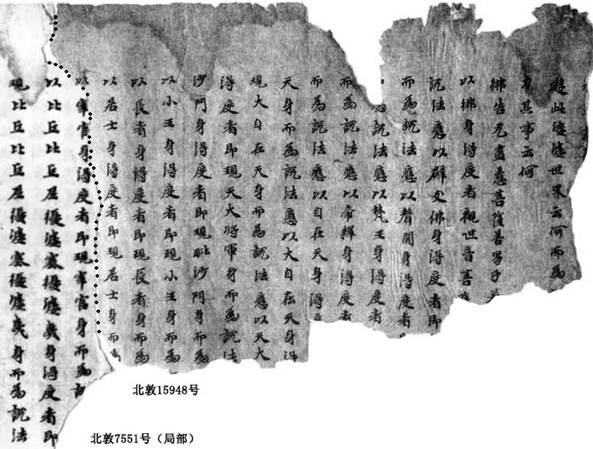 遊此娑婆世界云何而為
力其事云何
佛告无盡意菩薩善男子
以佛身得度者觀世音菩
說法應以辟支佛身得度者即
而為說法應以聲聞身得度者
為說法應以梵王身得度者
而為說法應以帝釋身得度者
而為說法應以自在天身得
天身而為說法應以大自在天身得
現大自在天身而為說法應以天大
得度者即現天大將軍身而為說法
沙門身得度者即現毗沙門身而
以小王身得度者即現小王身而為
以長者身得度者即現長者身而為
以居士身得度者即現居士身而為
以宰官身得度者即現宰官身而為說
以比丘比丘尼優婆塞優婆夷身得度者即
現比丘比丘尼優婆塞優婆夷身而為說法
北敦15948号
北敦7551号（局部）